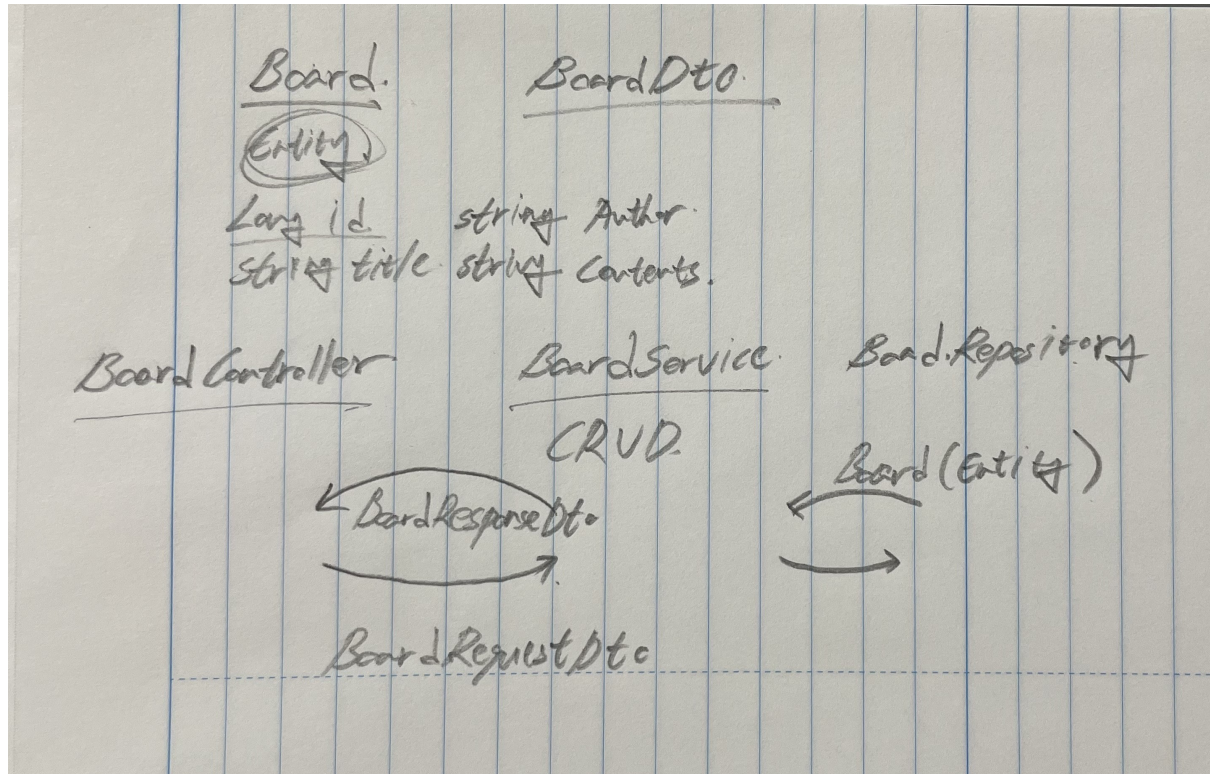 Board. BoardDto.
Entity
Long id. string Author.
string title string Contents.
BoardController BoardService. BoadRepository
CRUD.
Board (Entity)
BoardResponseDto
BoardRequestDto